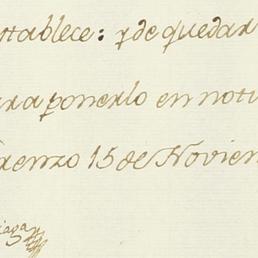 stablece: y de quedar
ara ponerlo en noti
orenzo 15 de Novien
iaga